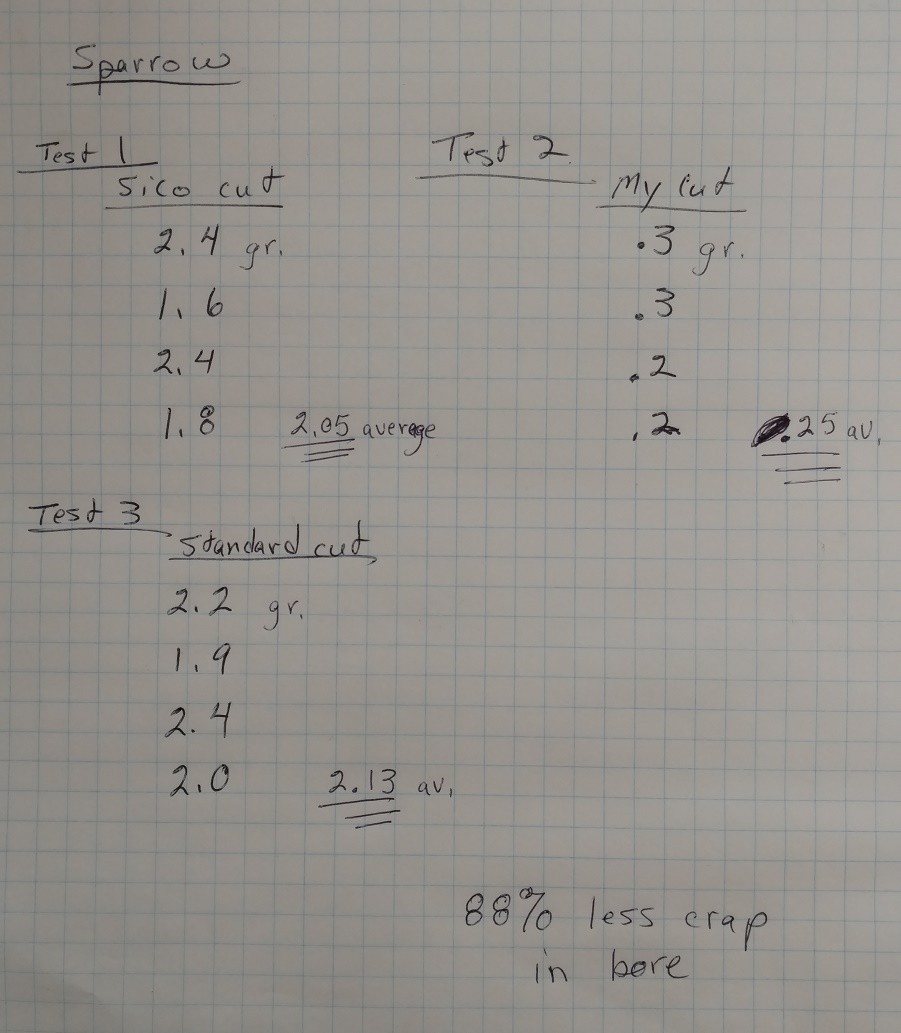 Sparrow
Test 1
Sico cut
2.4 gr.
1.6
2.4
1.8 2.05 average
Test 2
My cut
.3 gr.
.3
.2
.2 .25 av.
Test 3
Standard cut
2.2 gr.
1.9
2.4
2.0 2.13 av.
88% less crap
in bore